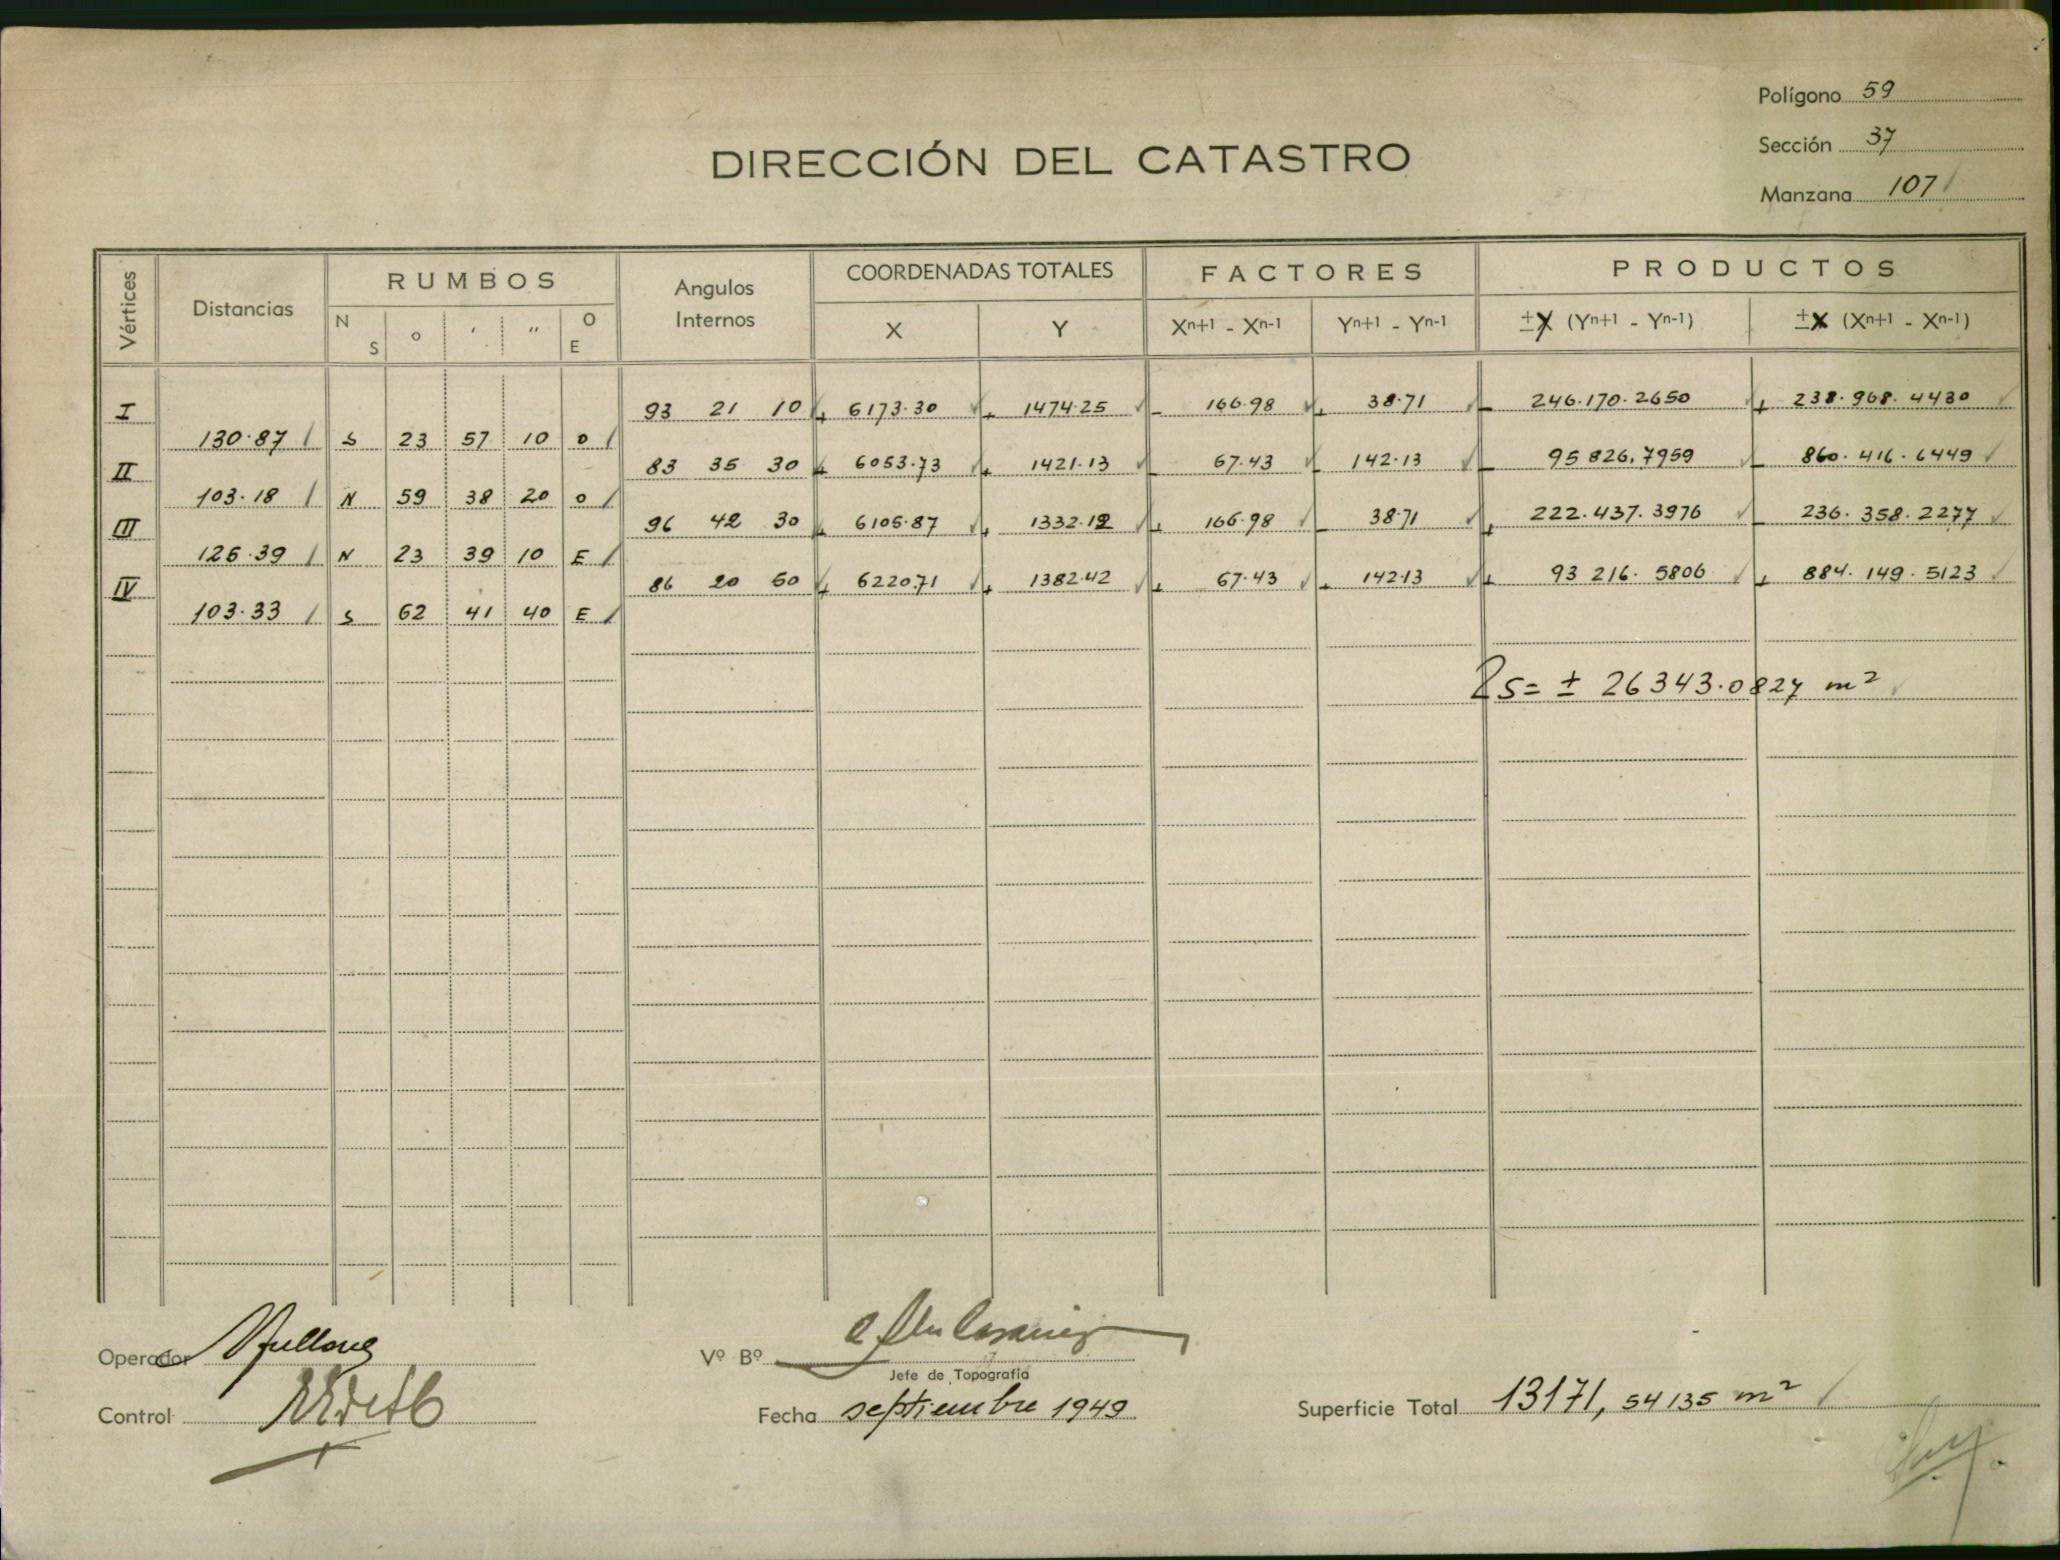 Polígono 59
Sección 37
Manzana 107
DIRECCIÓN DEL CATASTRO
Vértices Distancias RUMBOS Angulos Internos COORDENADAS TOTALES FACTORES PRODUCTOS
N S o ' '' O E X Y Xn+1 - Xn-1 Yn+1 - Yn-1 ±X (Yn+1 - Yn-1) ±X (Xn+1 - Xn-1)
I 93 21 10 + 6173.30 + 1474.25 - 166.98 + 38.71 - 246.170.2650 + 238.968.4430
130.87 S 23 57 10 O
II 83 35 30 + 6053.73 + 1421.13 - 67.43 - 142.13 - 95 826.7959 - 860.416.6449
103.18 N 59 38 20 O
III 96 42 30 + 6105.87 + 1332.12 + 166.98 - 38.71 + 222.437.3976 - 236.358.2277
126.39 N 23 39 10 E
IV 86 20 50 + 6220.71 + 1382.42 + 67.43 + 142.13 + 93 216.5806 + 884.149.5123
103.33 S 62 41 40 E
2s = ± 26343.0827 m²
Operador
Vº Bº
Jefe de Topografía
Control
Fecha septiembre 1949
Superficie Total 13171,54135 m²